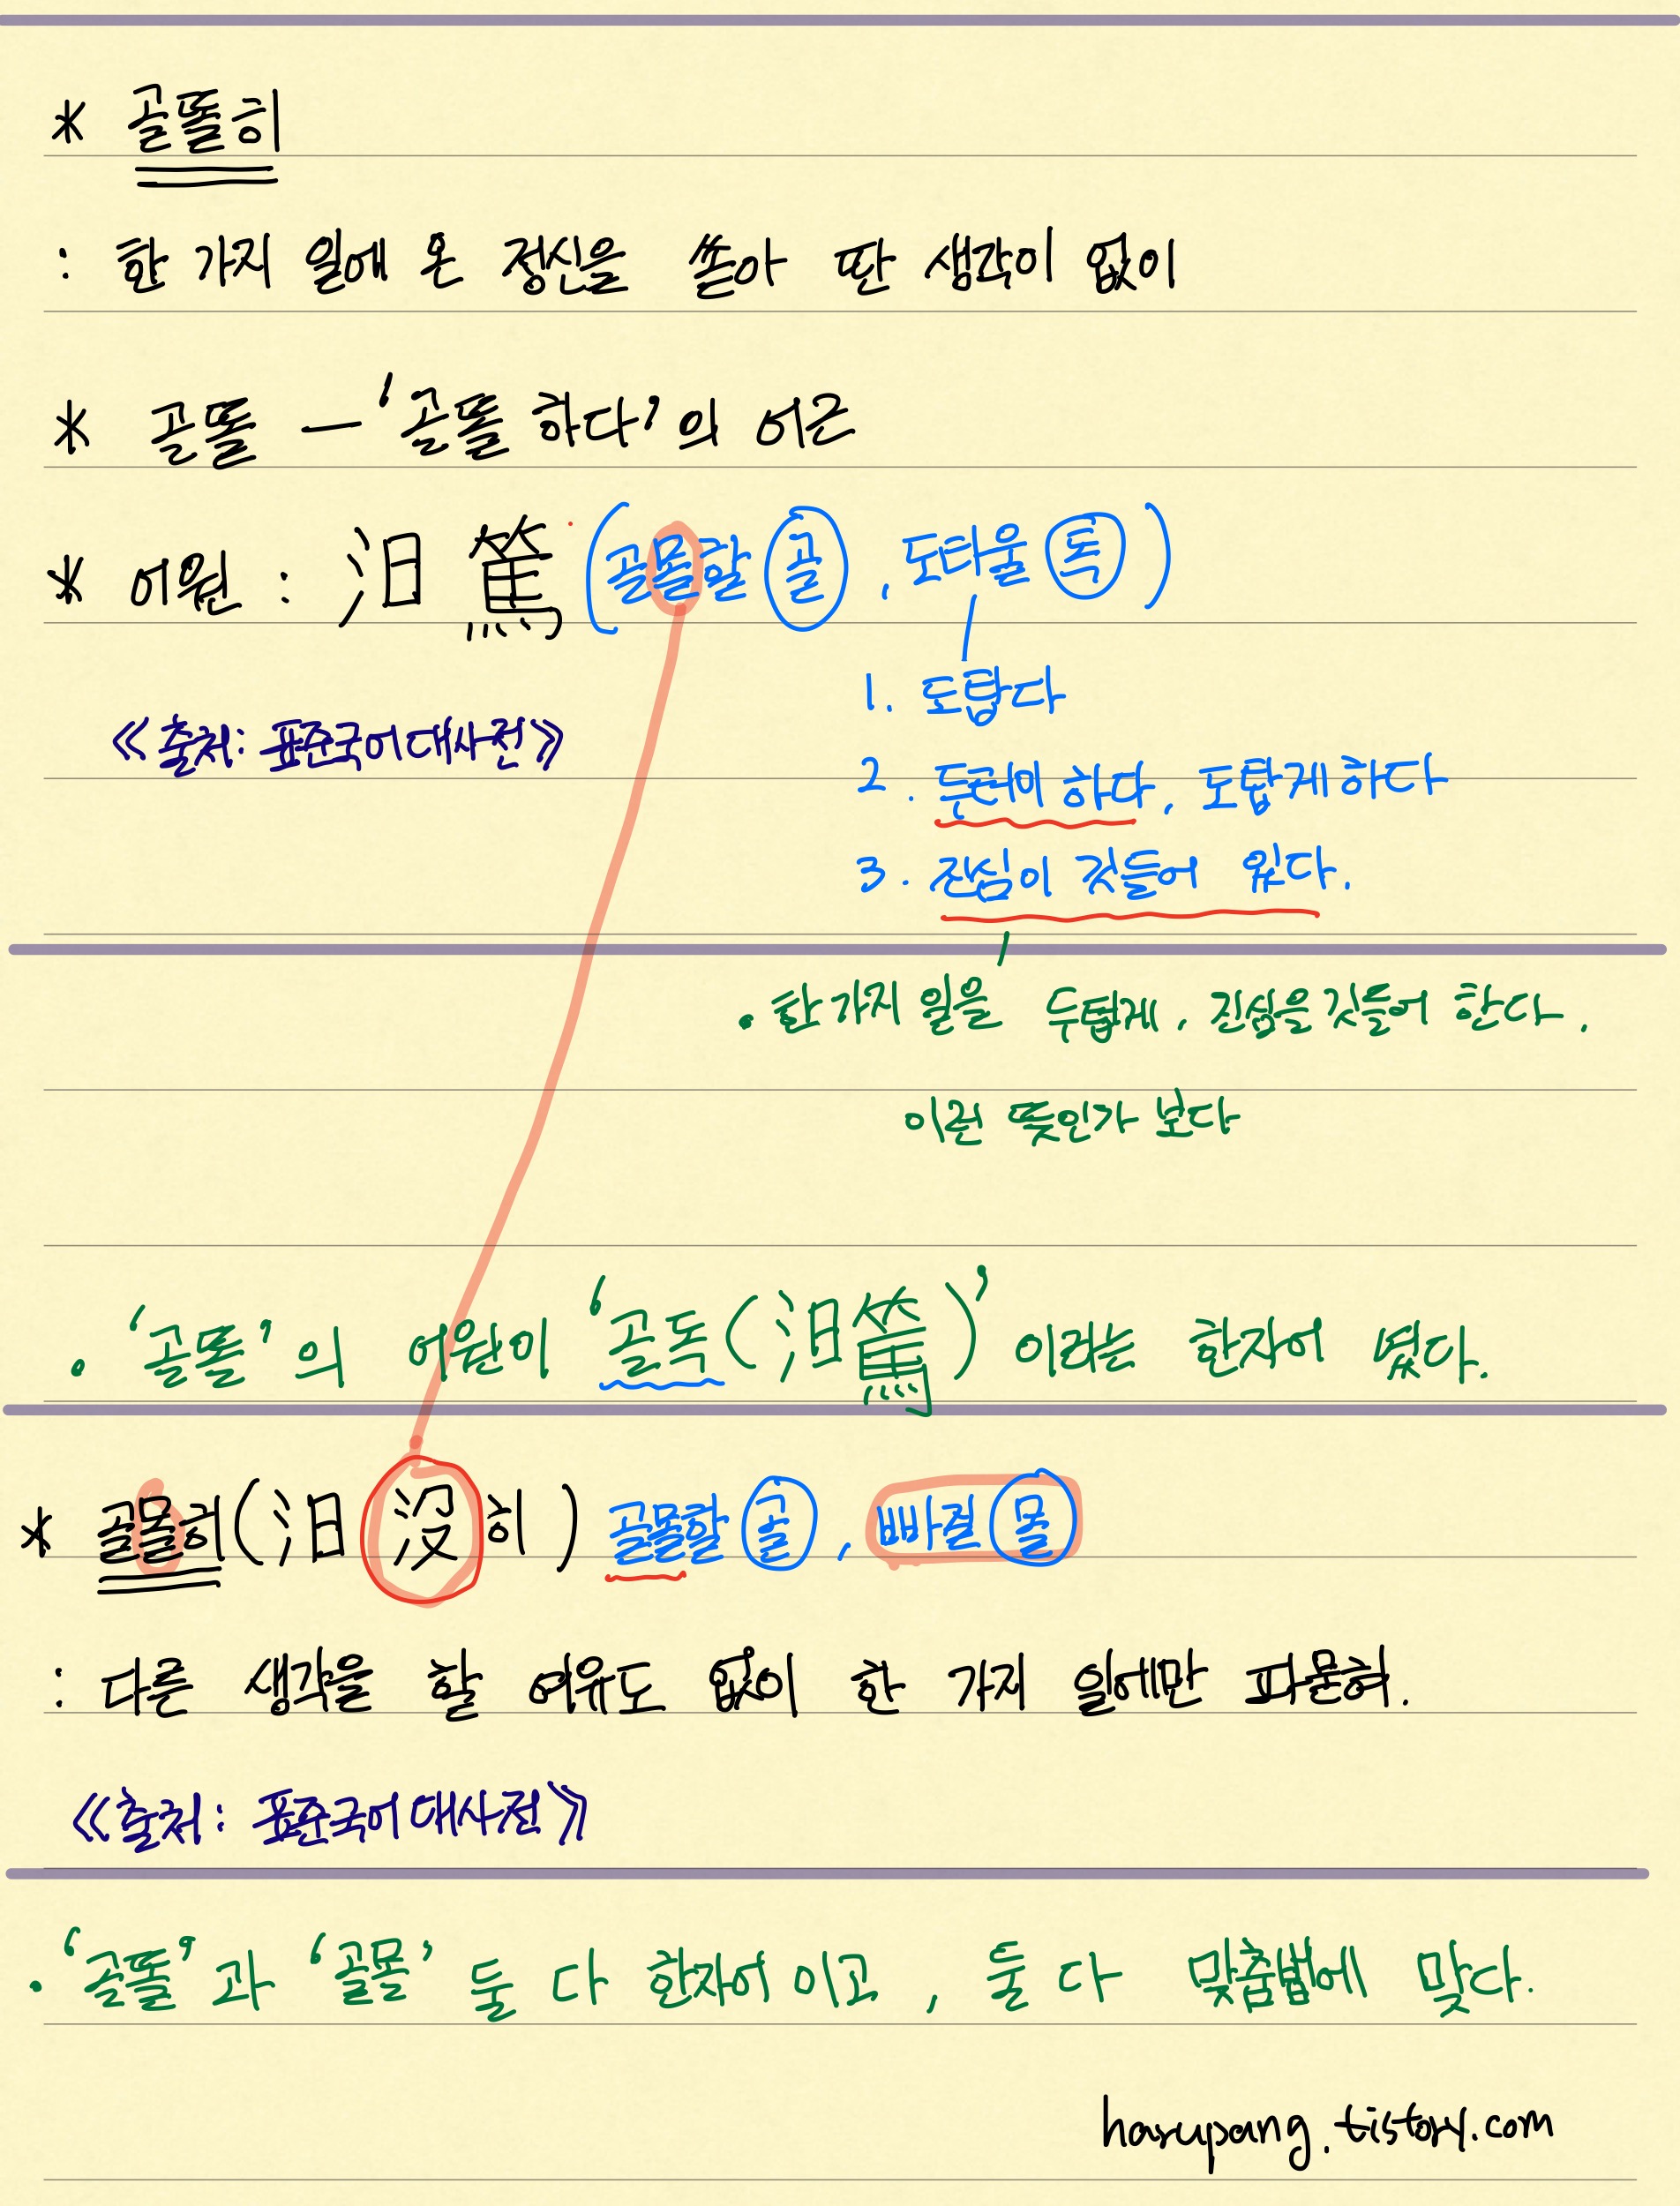 * 골똘히
: 한 가지 일에 온 정신을 쏟아 딴 생각이 없이
* 골똘 - '골똘하다'의 어근
* 어원 : 汨篤 (골몰할 골, 도타울 독)
1. 도탑다
《출처: 표준국어대사전》
2. 두터이 하다, 도탑게 하다
3. 진심이 깃들어 있다.
• 한 가지 일을 두텁게, 진심을 깃들어 한다.
이런 뜻인가 보다
• '골똘'의 어원이 '골독(汨篤)' 이라는 한자어 였다.
* 골몰히(汨沒히) 골몰할 골, 빠질 몰
: 다른 생각을 할 여유도 없이 한 가지 일에만 파묻혀.
《출처: 표준국어대사전》
• '골똘'과 '골몰' 둘 다 한자어이고, 둘 다 맞춤법에 맞다.
harupang.tistory.com